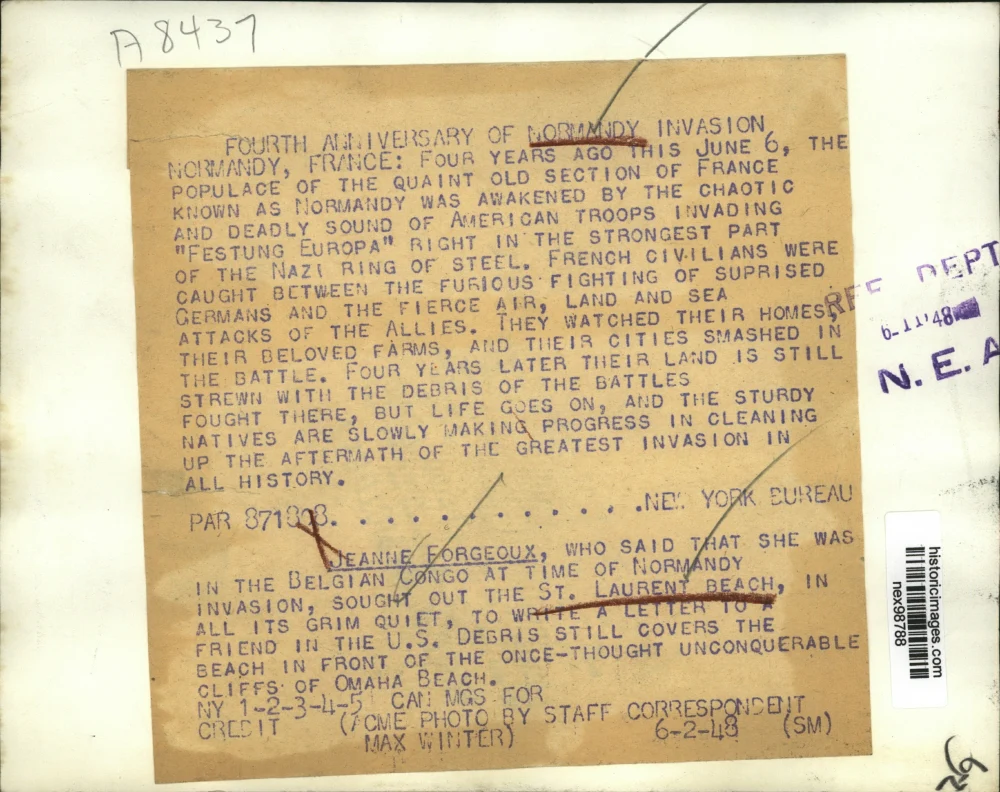 A8437
FOURTH ANNIVERSARY OF NORMANDY INVASION
NORMANDY, FRANCE: FOUR YEARS AGO THIS JUNE 6, THE
POPULACE OF THE QUAINT OLD SECTION OF FRANCE
KNOWN AS NORMANDY WAS AWAKENED BY THE CHAOTIC
AND DEADLY SOUND OF AMERICAN TROOPS INVADING
"FESTUNG EUROPA" RIGHT IN THE STRONGEST PART
OF THE NAZI RING OF STEEL. FRENCH CIVILIANS WERE
CAUGHT BETWEEN THE FURIOUS FIGHTING OF SUPRISED
GERMANS AND THE FIERCE AIR, LAND AND SEA
ATTACKS OF THE ALLIES. THEY WATCHED THEIR HOMES,
THEIR BELOVED FARMS, AND THEIR CITIES SMASHED IN
THE BATTLE. FOUR YEARS LATER THEIR LAND IS STILL
STREWN WITH THE DEBRIS OF THE BATTLES
FOUGHT THERE, BUT LIFE GOES ON, AND THE STURDY
NATIVES ARE SLOWLY MAKING PROGRESS IN CLEANING
UP THE AFTERMATH OF THE GREATEST INVASION IN
ALL HISTORY.
PAR 871808. . . . . . . . . . . . . .NEW YORK BUREAU
JEANNE FORGEOUX, WHO SAID THAT SHE WAS
IN THE BELGIAN CONGO AT TIME OF NORMANDY
INVASION, SOUGHT OUT THE ST. LAURENT BEACH, IN
ALL ITS GRIM QUIET, TO WRITE A LETTER TO A
FRIEND IN THE U.S. DEBRIS STILL COVERS THE
BEACH IN FRONT OF THE ONCE-THOUGHT UNCONQUERABLE
CLIFFS OF OMAHA BEACH.
NY 1-2-3-4-5 CAN MGS FOR
CREDIT (ACME PHOTO BY STAFF CORRESPONDENT
MAX WINTER) 6-2-48 (SM)
REF DEPT
6-11-48
N.E.A
historicimages.com
nex98788